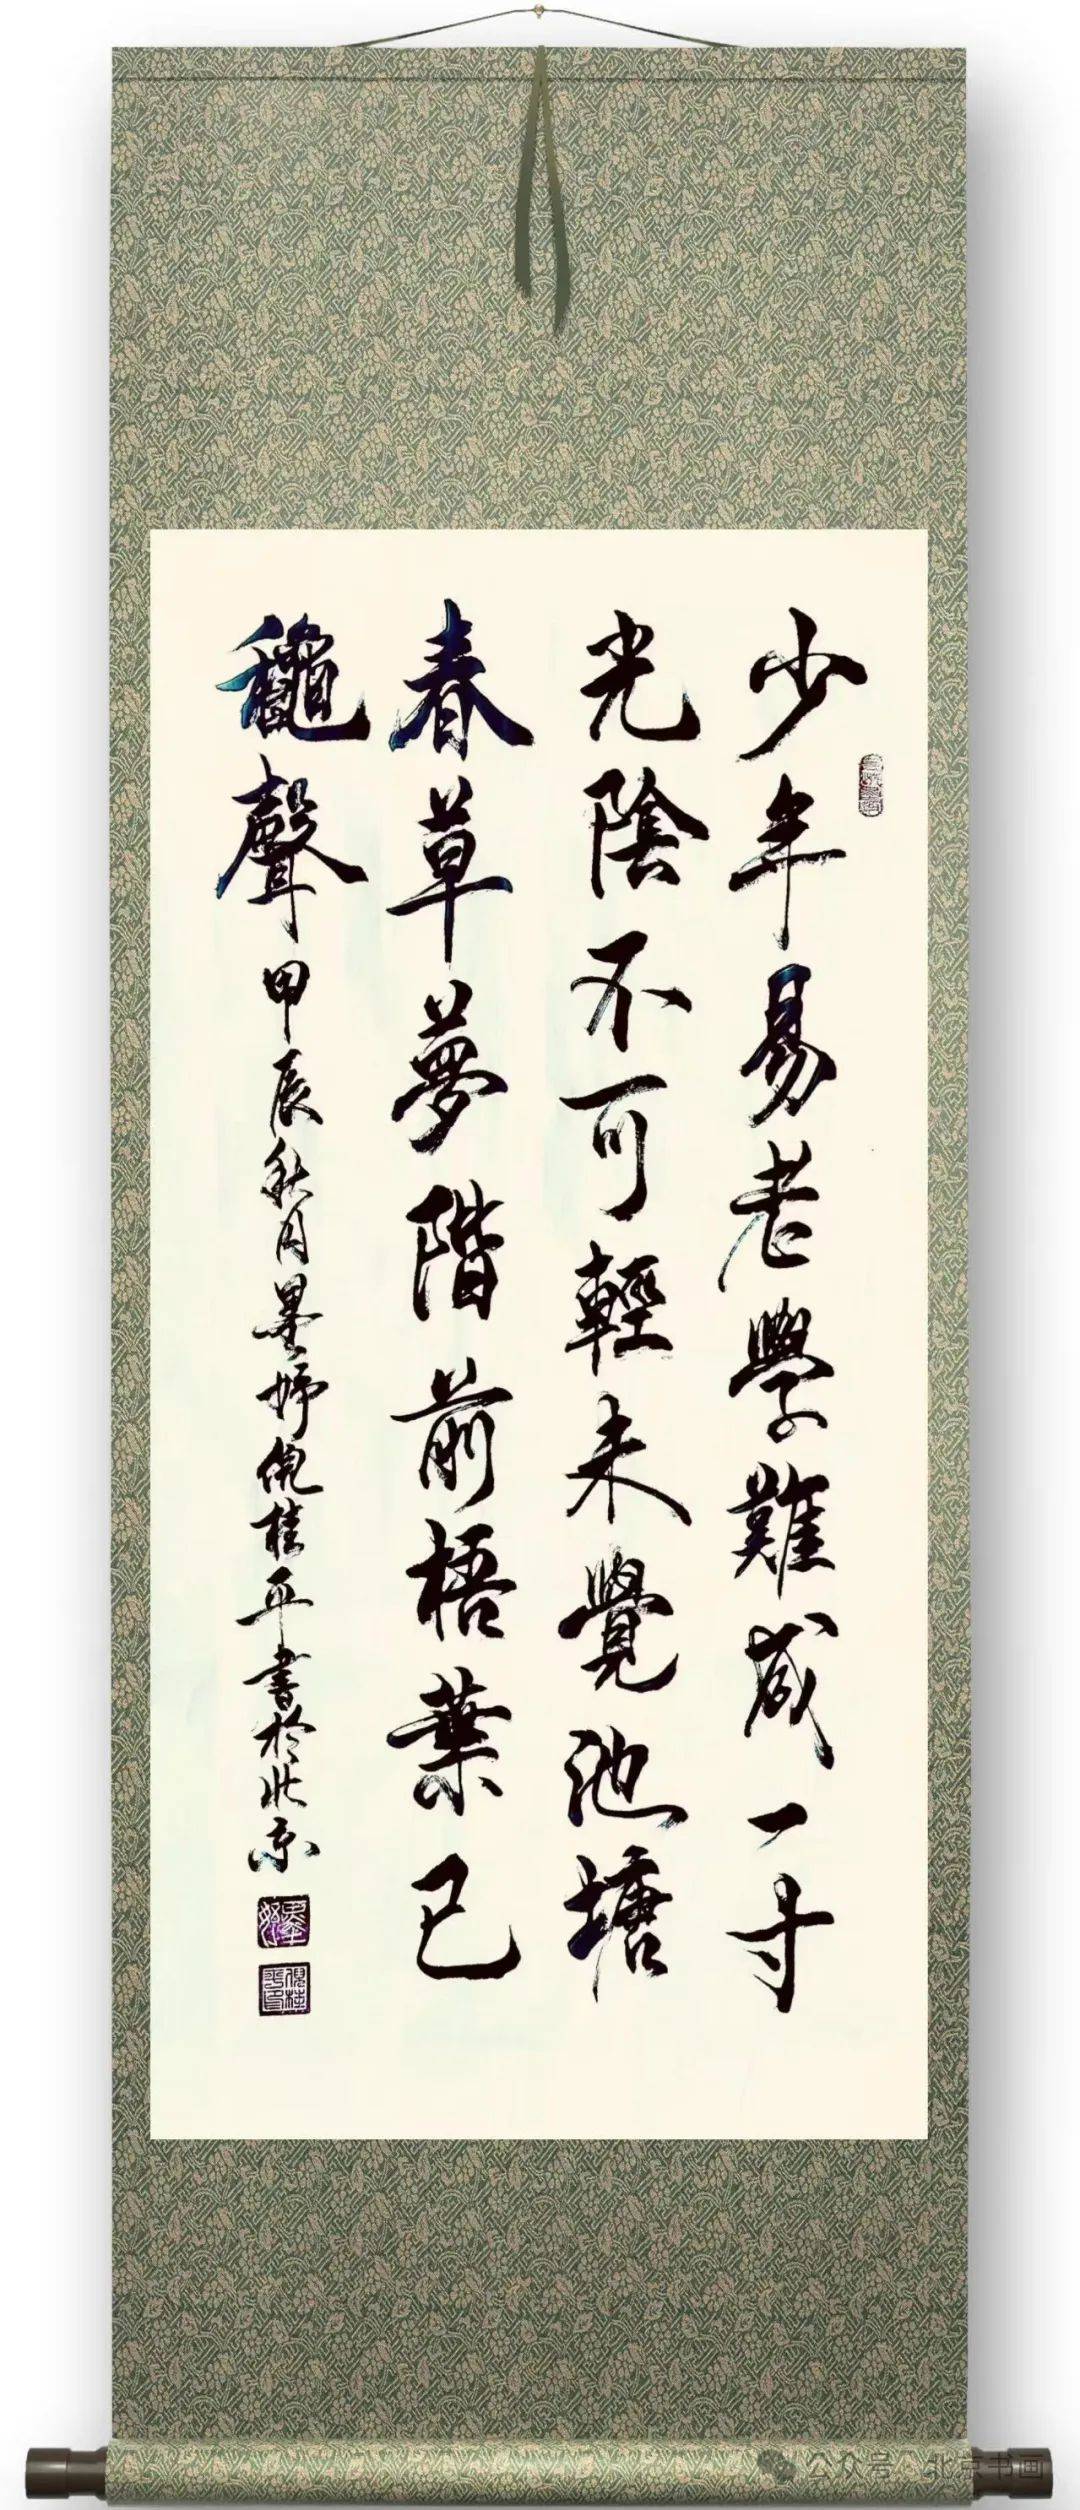 少年易老學難成一寸
光陰不可輕未覺池塘
春草夢階前梧葉已
龝聲
甲辰秋月墨婷倪桂平書於北京
公众号 · 北京书画